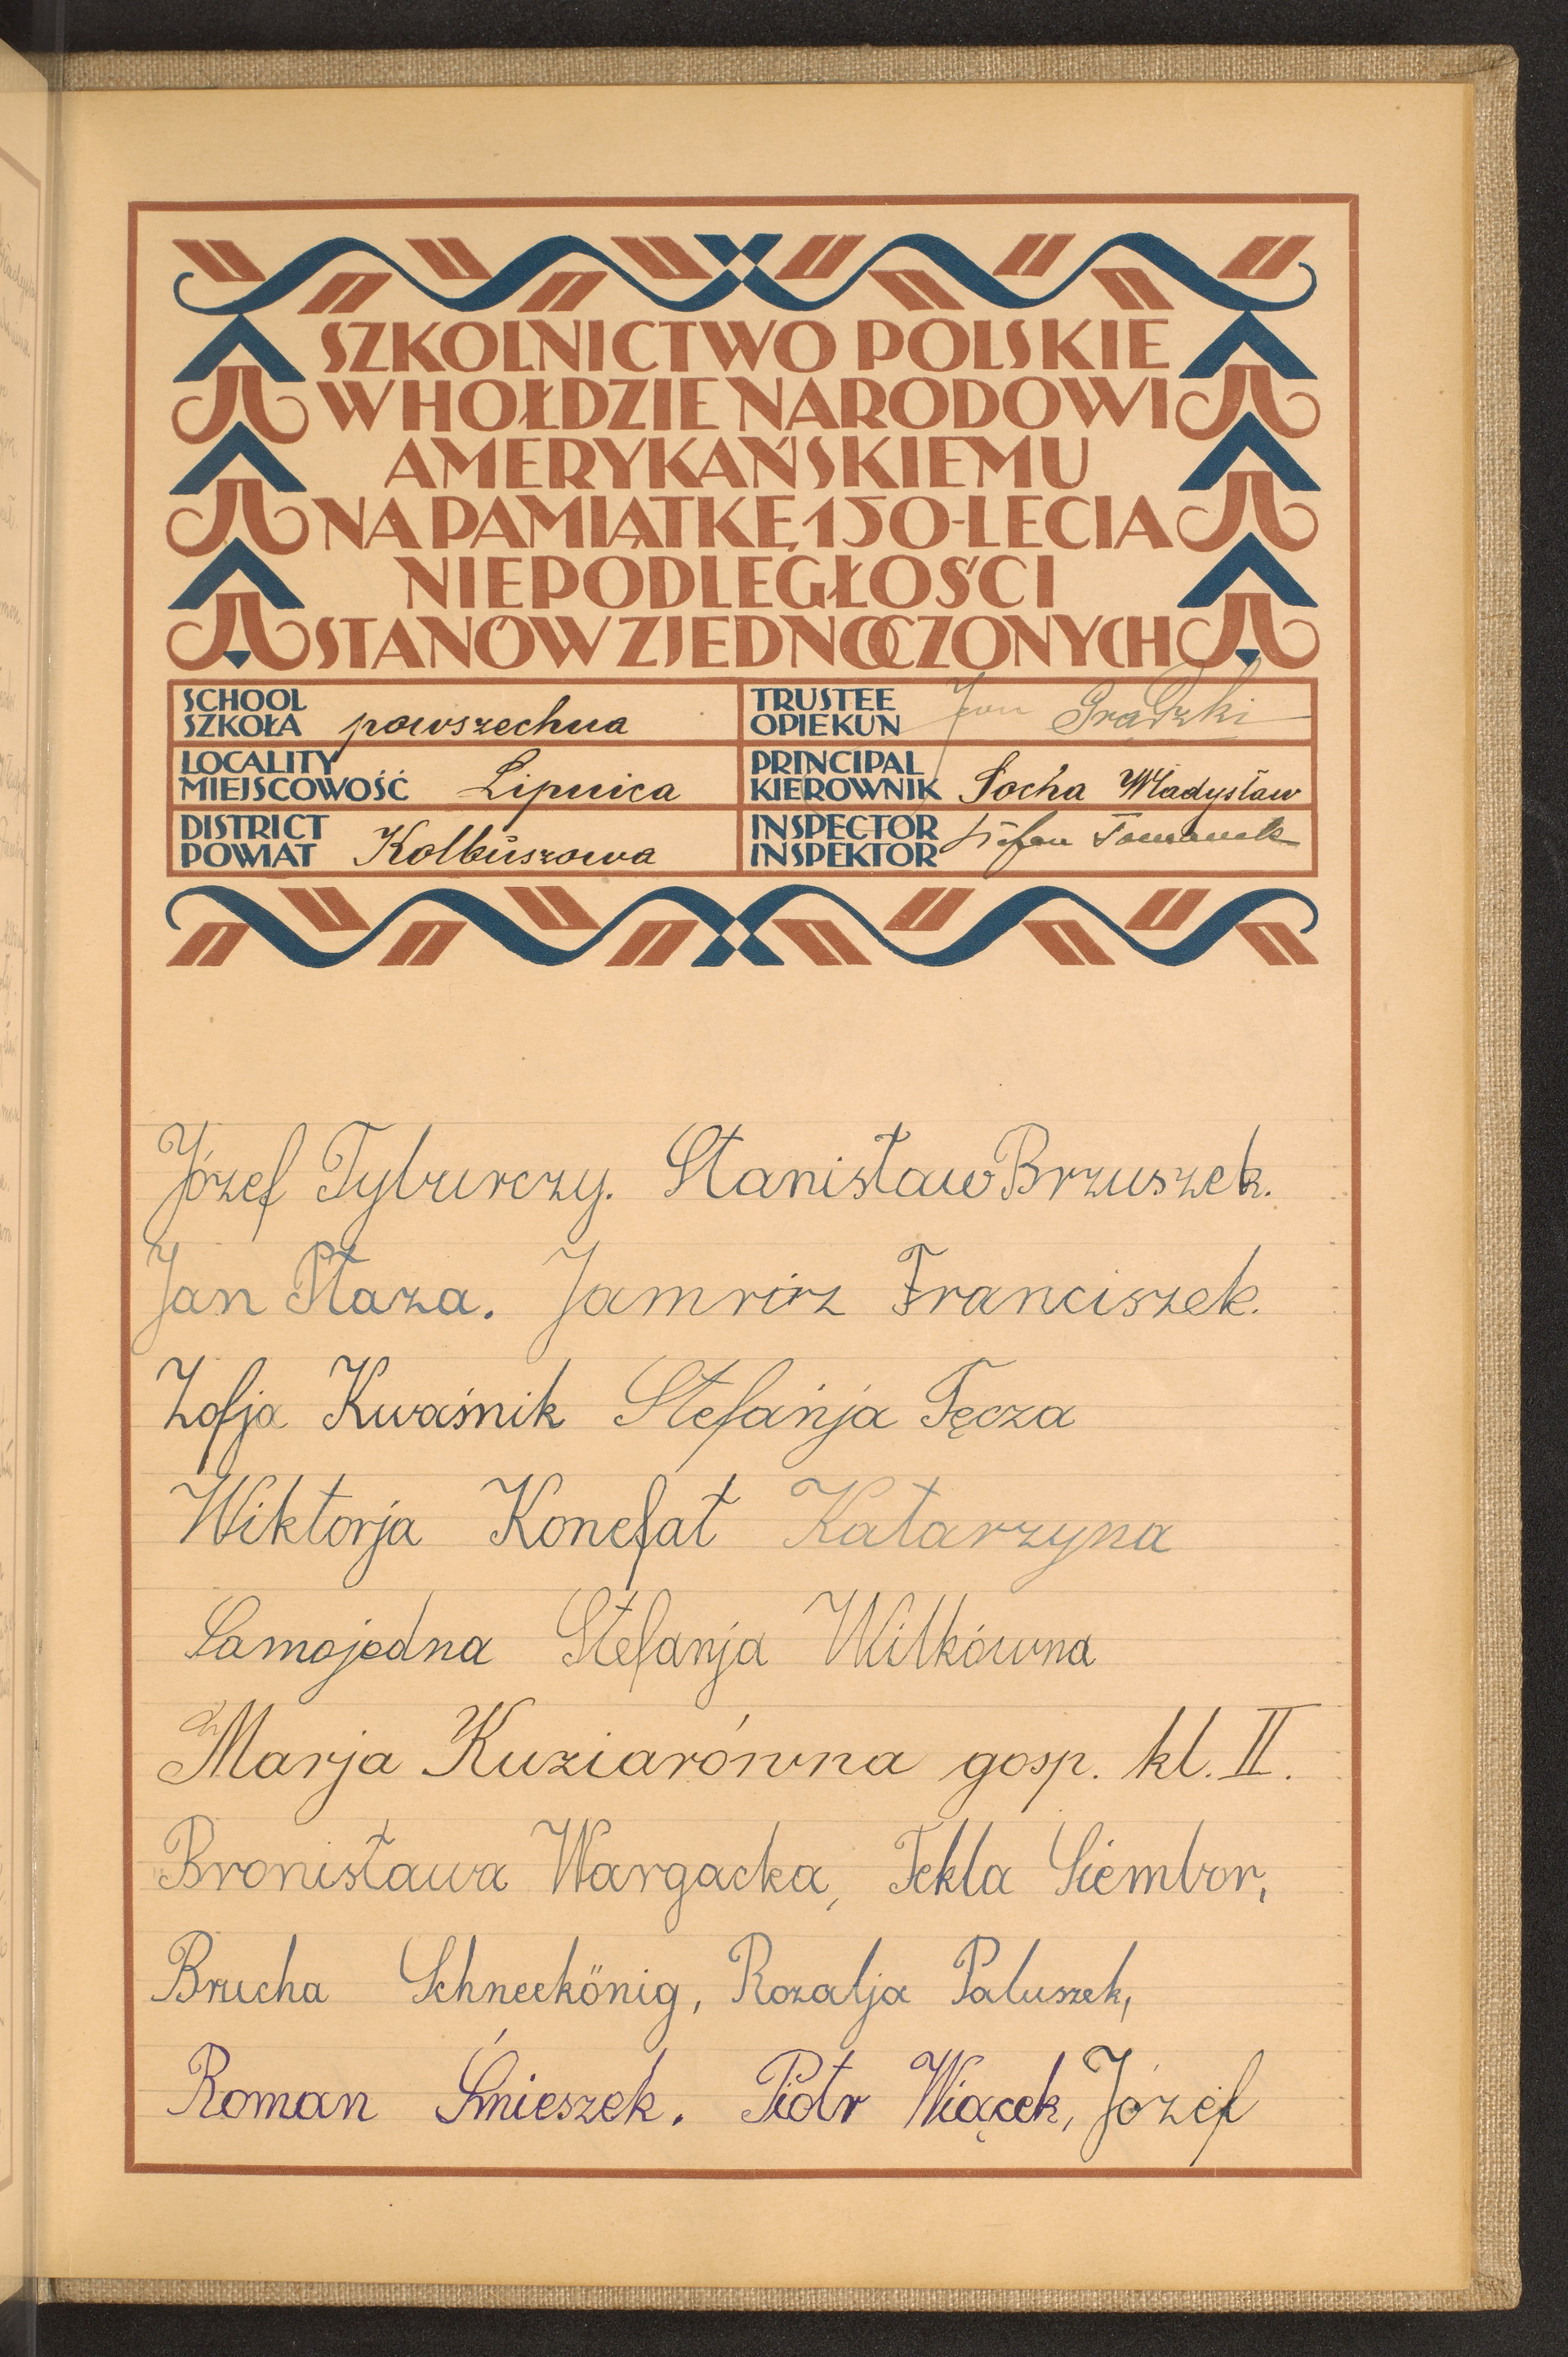 SZKOLNICTWO POLSKIE
W HOŁDZIE NARODOWI
AMERYKAŃSKIEMU
NA PAMIĄTKĘ 150-LECIA
NIEPODLEGŁOŚCI
STANÓW ZJEDNOCZONYCH
SCHOOL
SZKOŁA powszechna
TRUSTEE
OPIEKUN Jan Grądzki
LOCALITY
MIEJSCOWOŚĆ Lipnica
PRINCIPAL
KIEROWNIK Socha Władysław
DISTRICT
POWIAT Kolbuszowa
INSPECTOR
INSPEKTOR Stefan Tomanek
Józef Tyburczy. Stanisław Brzuszek.
Jan Płaza. Jamróz Franciszek.
Zofja Kwaśnik Stefanja Tęcza
Wiktorja Konefał Katarzyna
Samojedna Stefanja Wilkówna
Marja Kuziarówna gosp. kl. II.
Bronisława Wargacka, Tekla Siembor,
Brucha Schneekönig, Rozalja Paluszek,
Roman Śmieszek. Piotr Wiącek, Józef